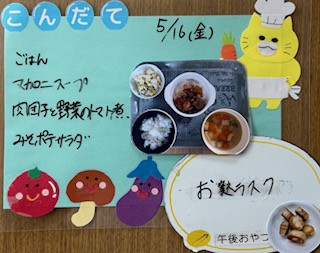 こんだて
5/16(金)
ごはん
マカロニスープ
肉団子と野菜のトマト煮
みそポテサラダ
お麩ラスク
午後おやつ